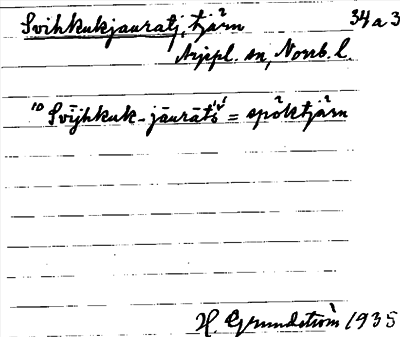 Svihkukjauratj, tjärn 34 a 3
Arjepl. sn, Norrb. l.
10 Svı̄jhkuk-jāurāts̀ = spöktjärn
H. Grundström 1935